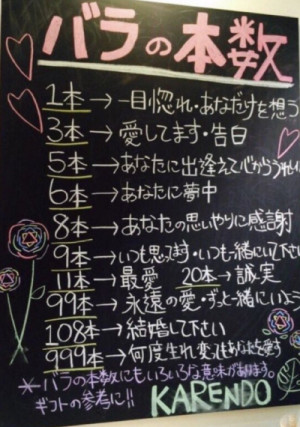 バラの本数
1本→一目惚れ・あなただけを想う
3本→愛してます・告白
5本→あなたに出逢えて心からうれしい
6本→あなたに夢中
8本→あなたの思いやりに感謝
9本→いつも想ってます・いつも一緒にいて下さい
11本→最愛 20本→誠実
99本→永遠の愛・ずっと一緒にいよう
108本→結婚して下さい
999本→何度生れ変ってもあなたを愛す
*バラの本数にもいろいろな意味があります。
ギフトの参考に!! KARENDO